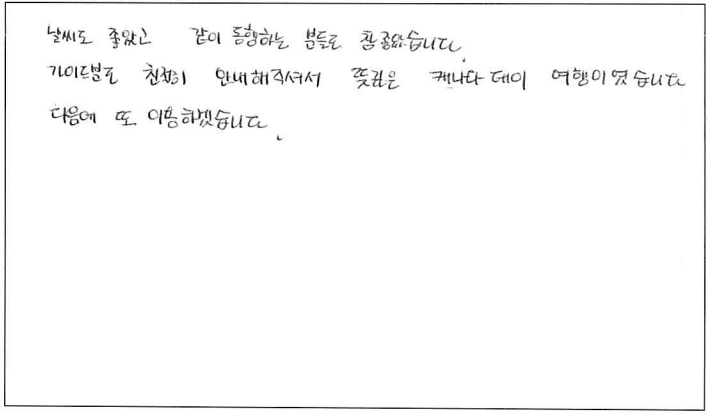 날씨도 좋았고 같이 동행하는 분들도 참 좋았습니다.
가이드분도 친절히 안내해주셔서 뜻깊은 캐나다 데이 여행이였습니다
다음에 또 이용하겠습니다.